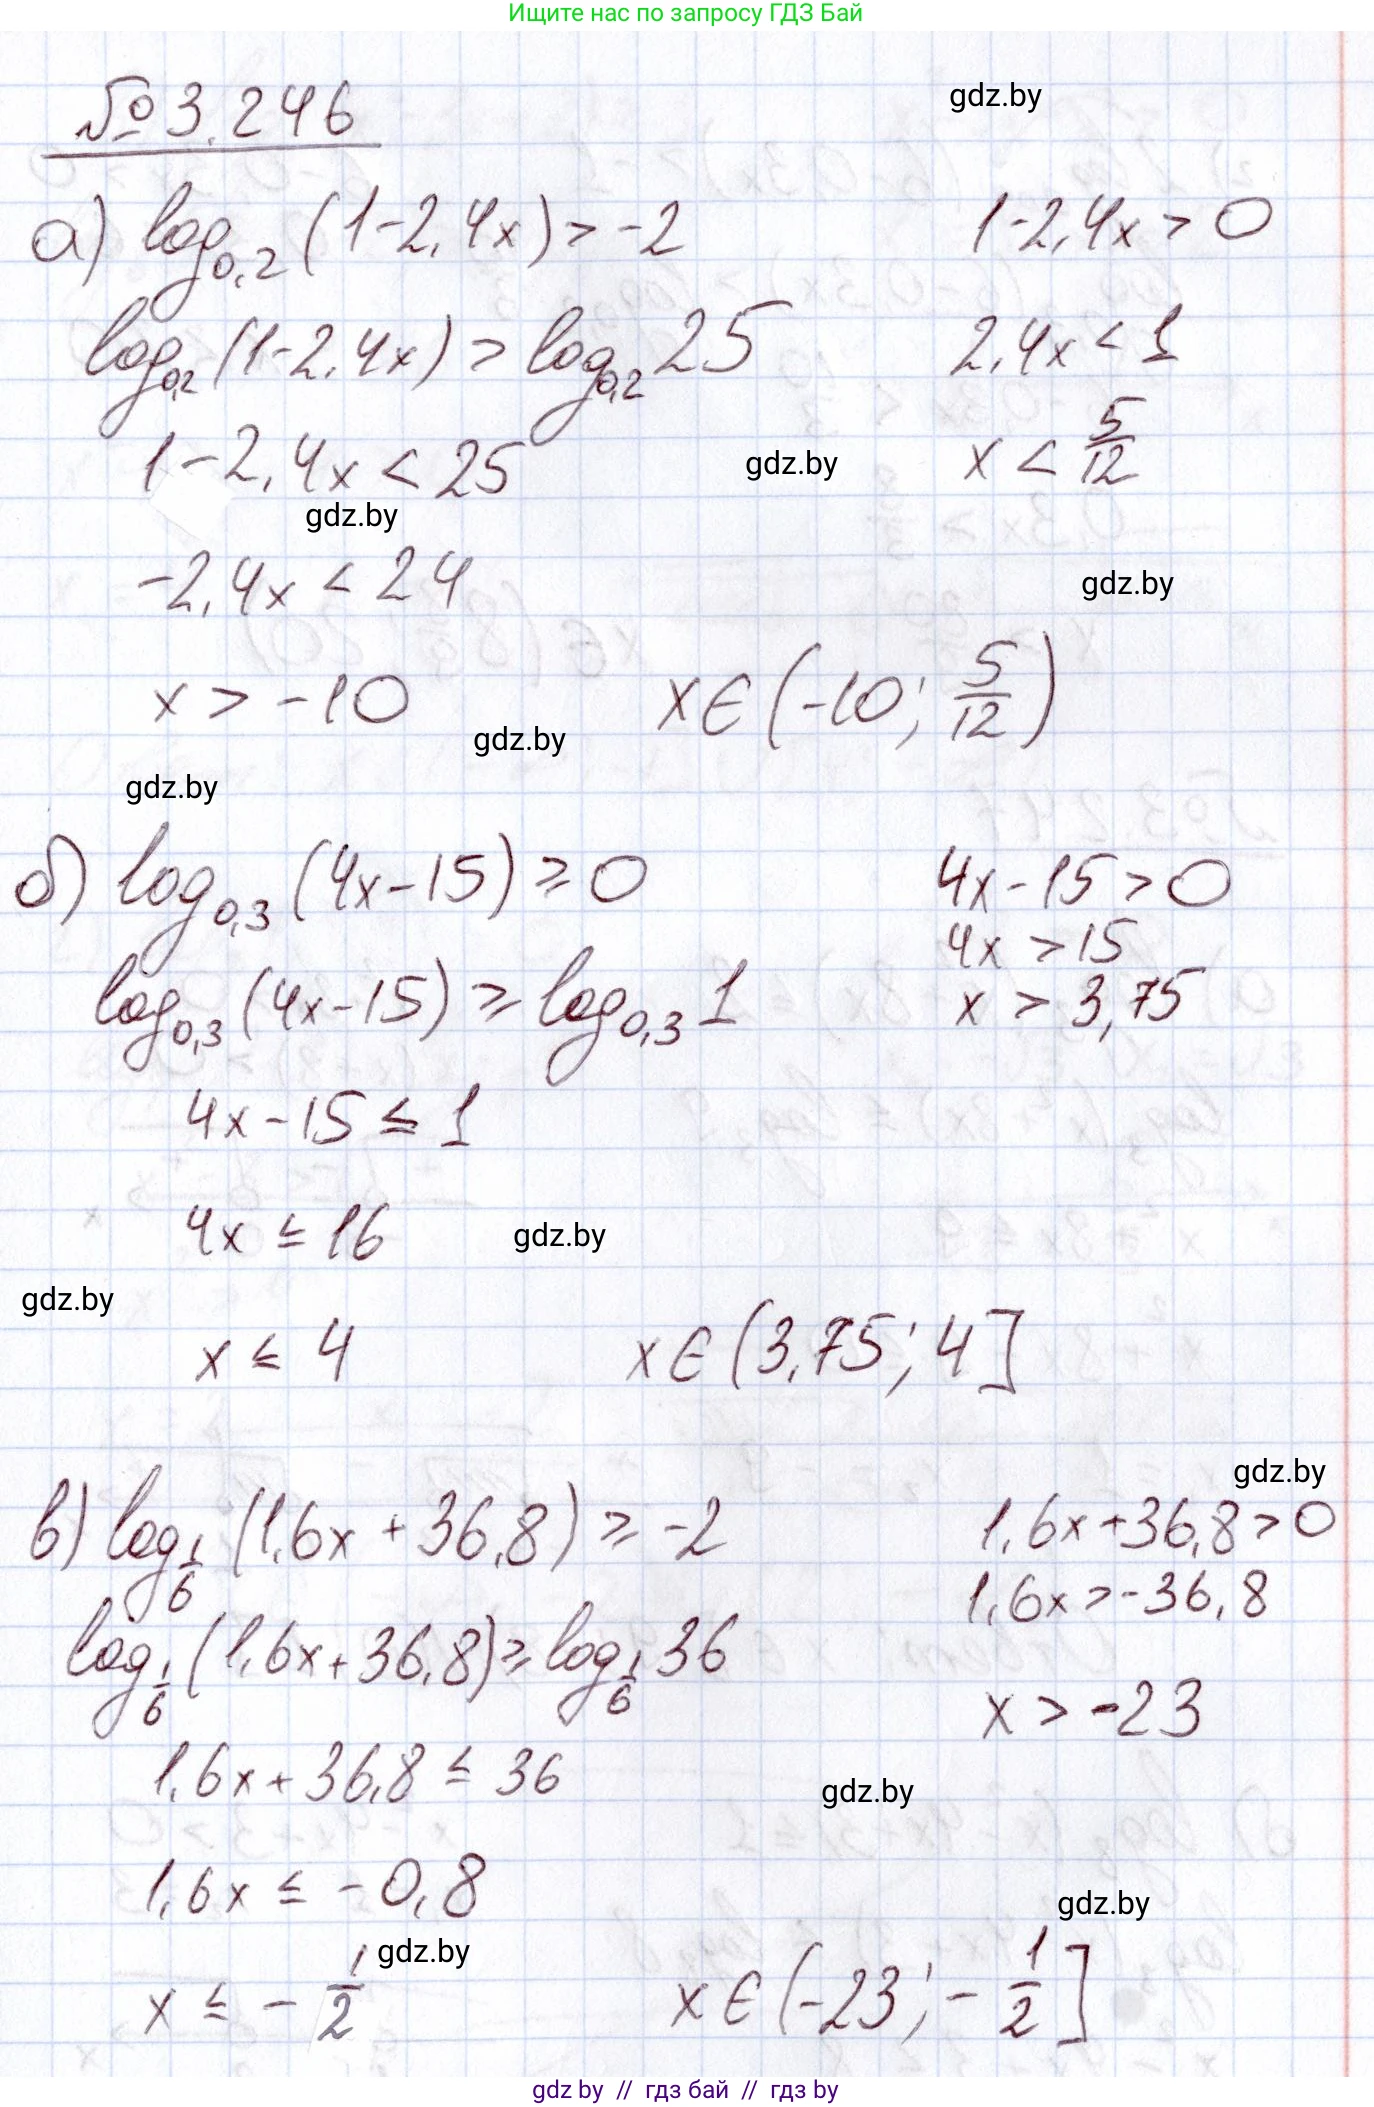 Ищите нас по запросу ГДЗ Бай
№ 3.246
gdz.by
а) log₀,₂ (1-2,4x) > -2
1-2,4x > 0
log₀,₂ (1-2,4x) > log₀,₂ 25
2,4x < 1
1-2,4x < 25
gdz.by
x < 5/12
gdz.by
-2,4x < 24
gdz.by
x > -10
x ∈ (-10; 5/12)
gdz.by
gdz.by
б) log₀,₃ (4x-15) ≥ 0
4x-15 > 0
4x > 15
log₀,₃ (4x-15) ≥ log₀,₃ 1
x > 3,75
4x-15 ≤ 1
4x ≤ 16
gdz.by
gdz.by
x ≤ 4
x ∈ (3,75; 4]
gdz.by
в) log_1/6 (1,6x + 36,8) ≥ -2
1,6x+36,8 > 0
1,6x > -36,8
log_1/6 (1,6x+36,8) ≥ log_1/6 36
x > -23
1,6x + 36,8 ≤ 36
gdz.by
1,6x ≤ -0,8
gdz.by
gdz.by
x ≤ - 1/2
x ∈ (-23; - 1/2]
gdz.by // гдз бай // гдз by